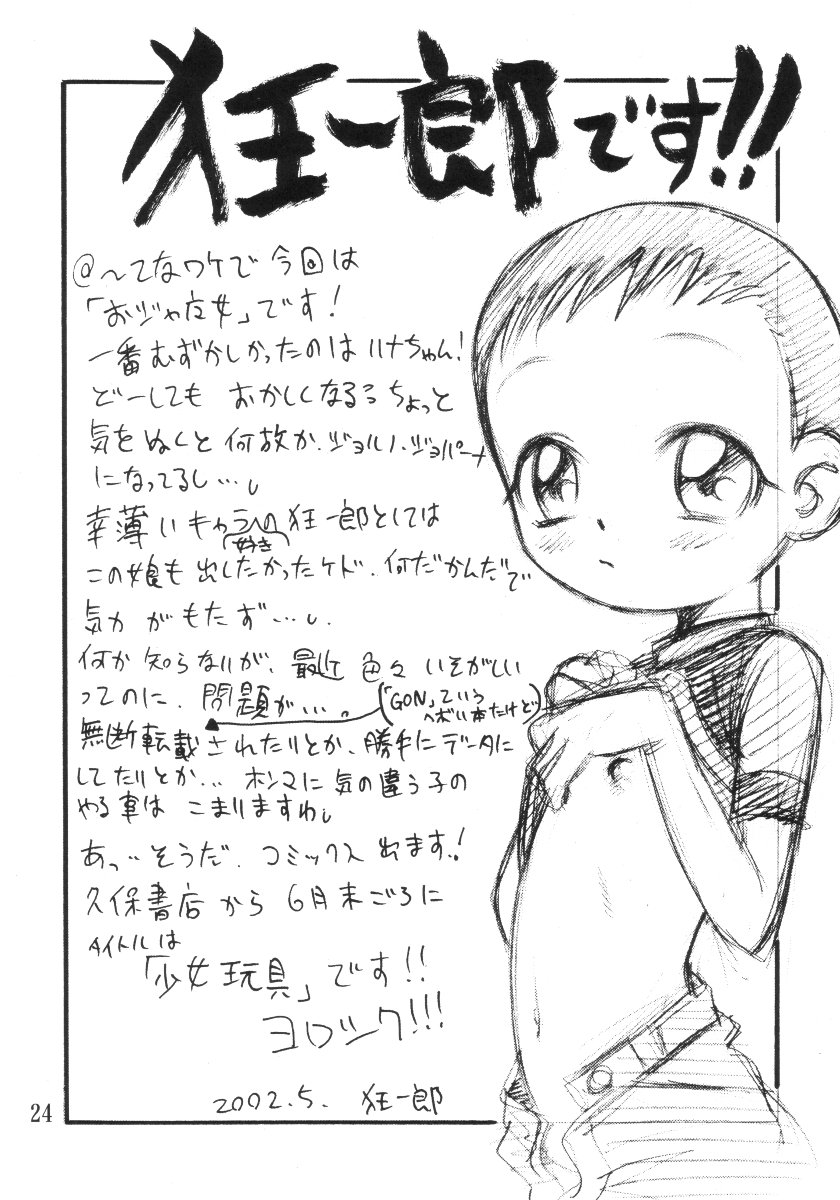 狂一郎です!!
@〜てなワケで今回は
「おジャ魔女」です!
一番むずかしかったのはハナちゃん!
どーしても おかしくなる ちょっと
気をぬくと何故か、ジョルノ・ジョバーナ
になってるし…。
幸薄いキャラへの狂一郎としては
好き
この娘も出したかったケド、何だかんだで
気力がもたず…。
何か知らないが、最近色々いそがしい
ってのに、問題が…。
(「GON」ていう
ヘボい本だけど)
無断転載されたりとか、勝手にデータに
してたりとか… ホンマに気の違う子の
やる事は こまりますわ。
あっ…そうだ、コミックス出ます!
久保書店から 6月末ごろに
タイトルは
「少女玩具」です!!
ヨロシク!!!
2002.5. 狂一郎
24